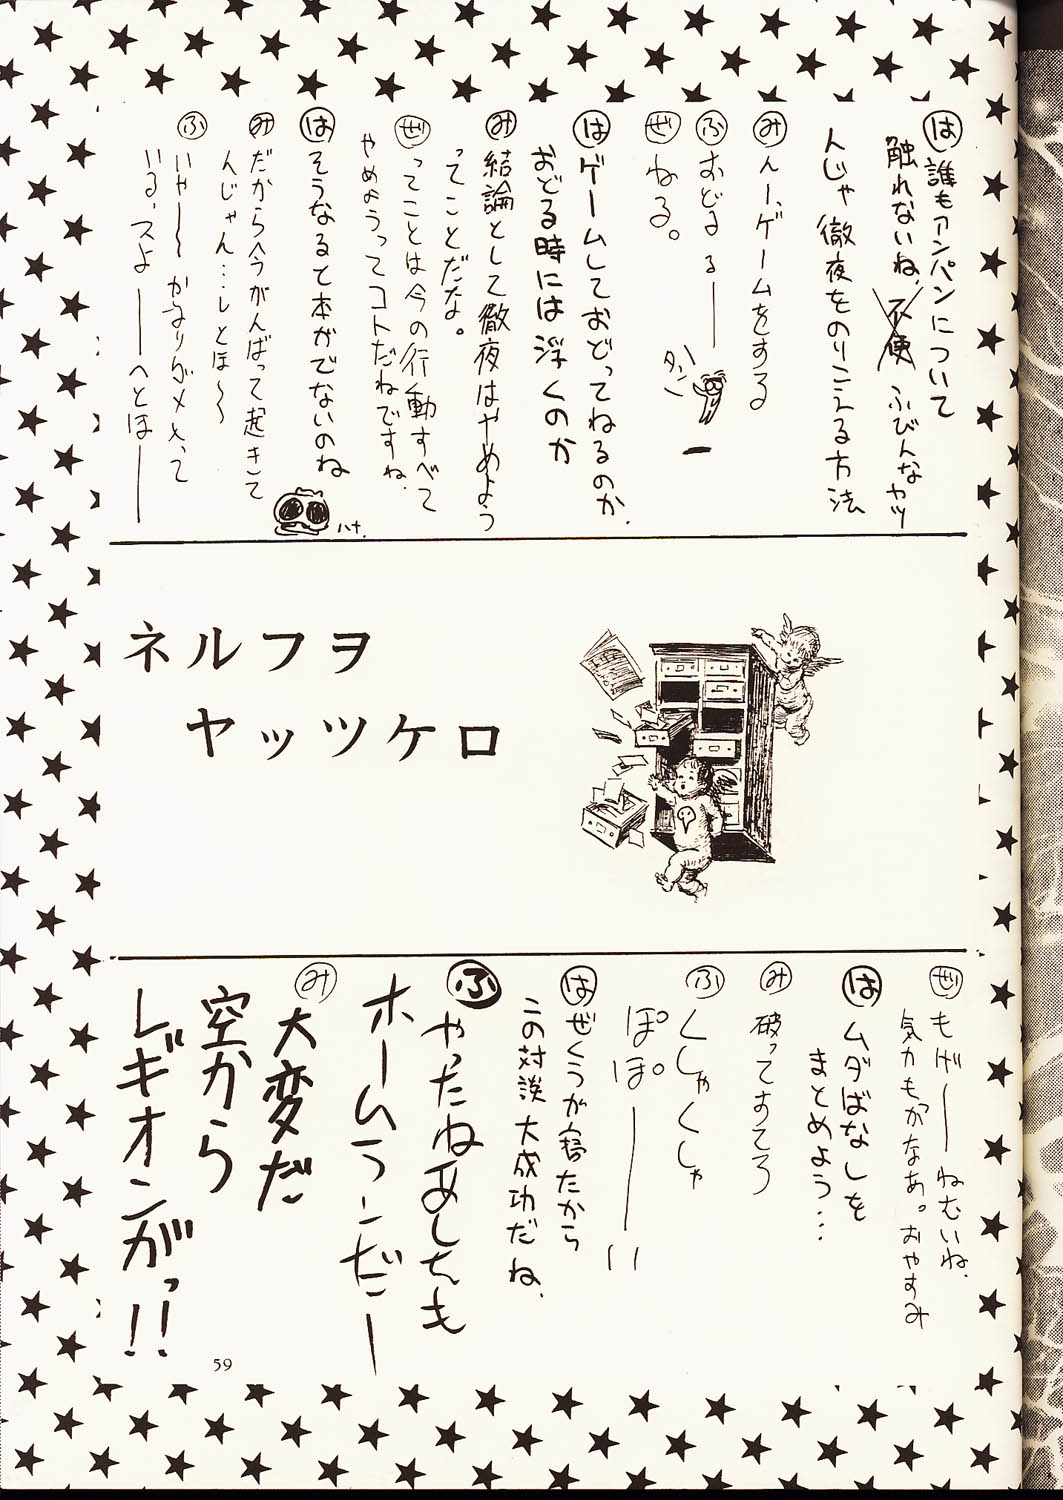 は 誰もアンパンについて
触れないね、不便 ふびんなヤツ
んじゃ徹夜をのりこえる方法
み んー、ゲームをする
ふ おどるー
タン
ぜ ねる。
は ゲームしておどってねるのか、
おどる時には浮くのか
み 結論として徹夜はやめよう
ってことだな。
ぜ ってことは今の行動すべて
やめようってコトだねですね、
は そうなると本がでないのね
ハナ、
み だから今がんばって起きて
んじゃん…しとほ〜〜
ふ いや〜〜かなりダメとって
いる、スよ――へとほ――
ネルフヲ
ヤッツケロ
ぜ もげ――ねむいね、
気力もつかなあ。おやすみ
は ムダばなしを
まとめよう…
み 破ってすてろ
ふ くしゃくしゃ
ぽぽ――い
は ぜくうが寝たから
この対談大成功だね、
ふ やったねあしたも
ホームランだー
み 大変だ
空から
レギオンがっ!!
59